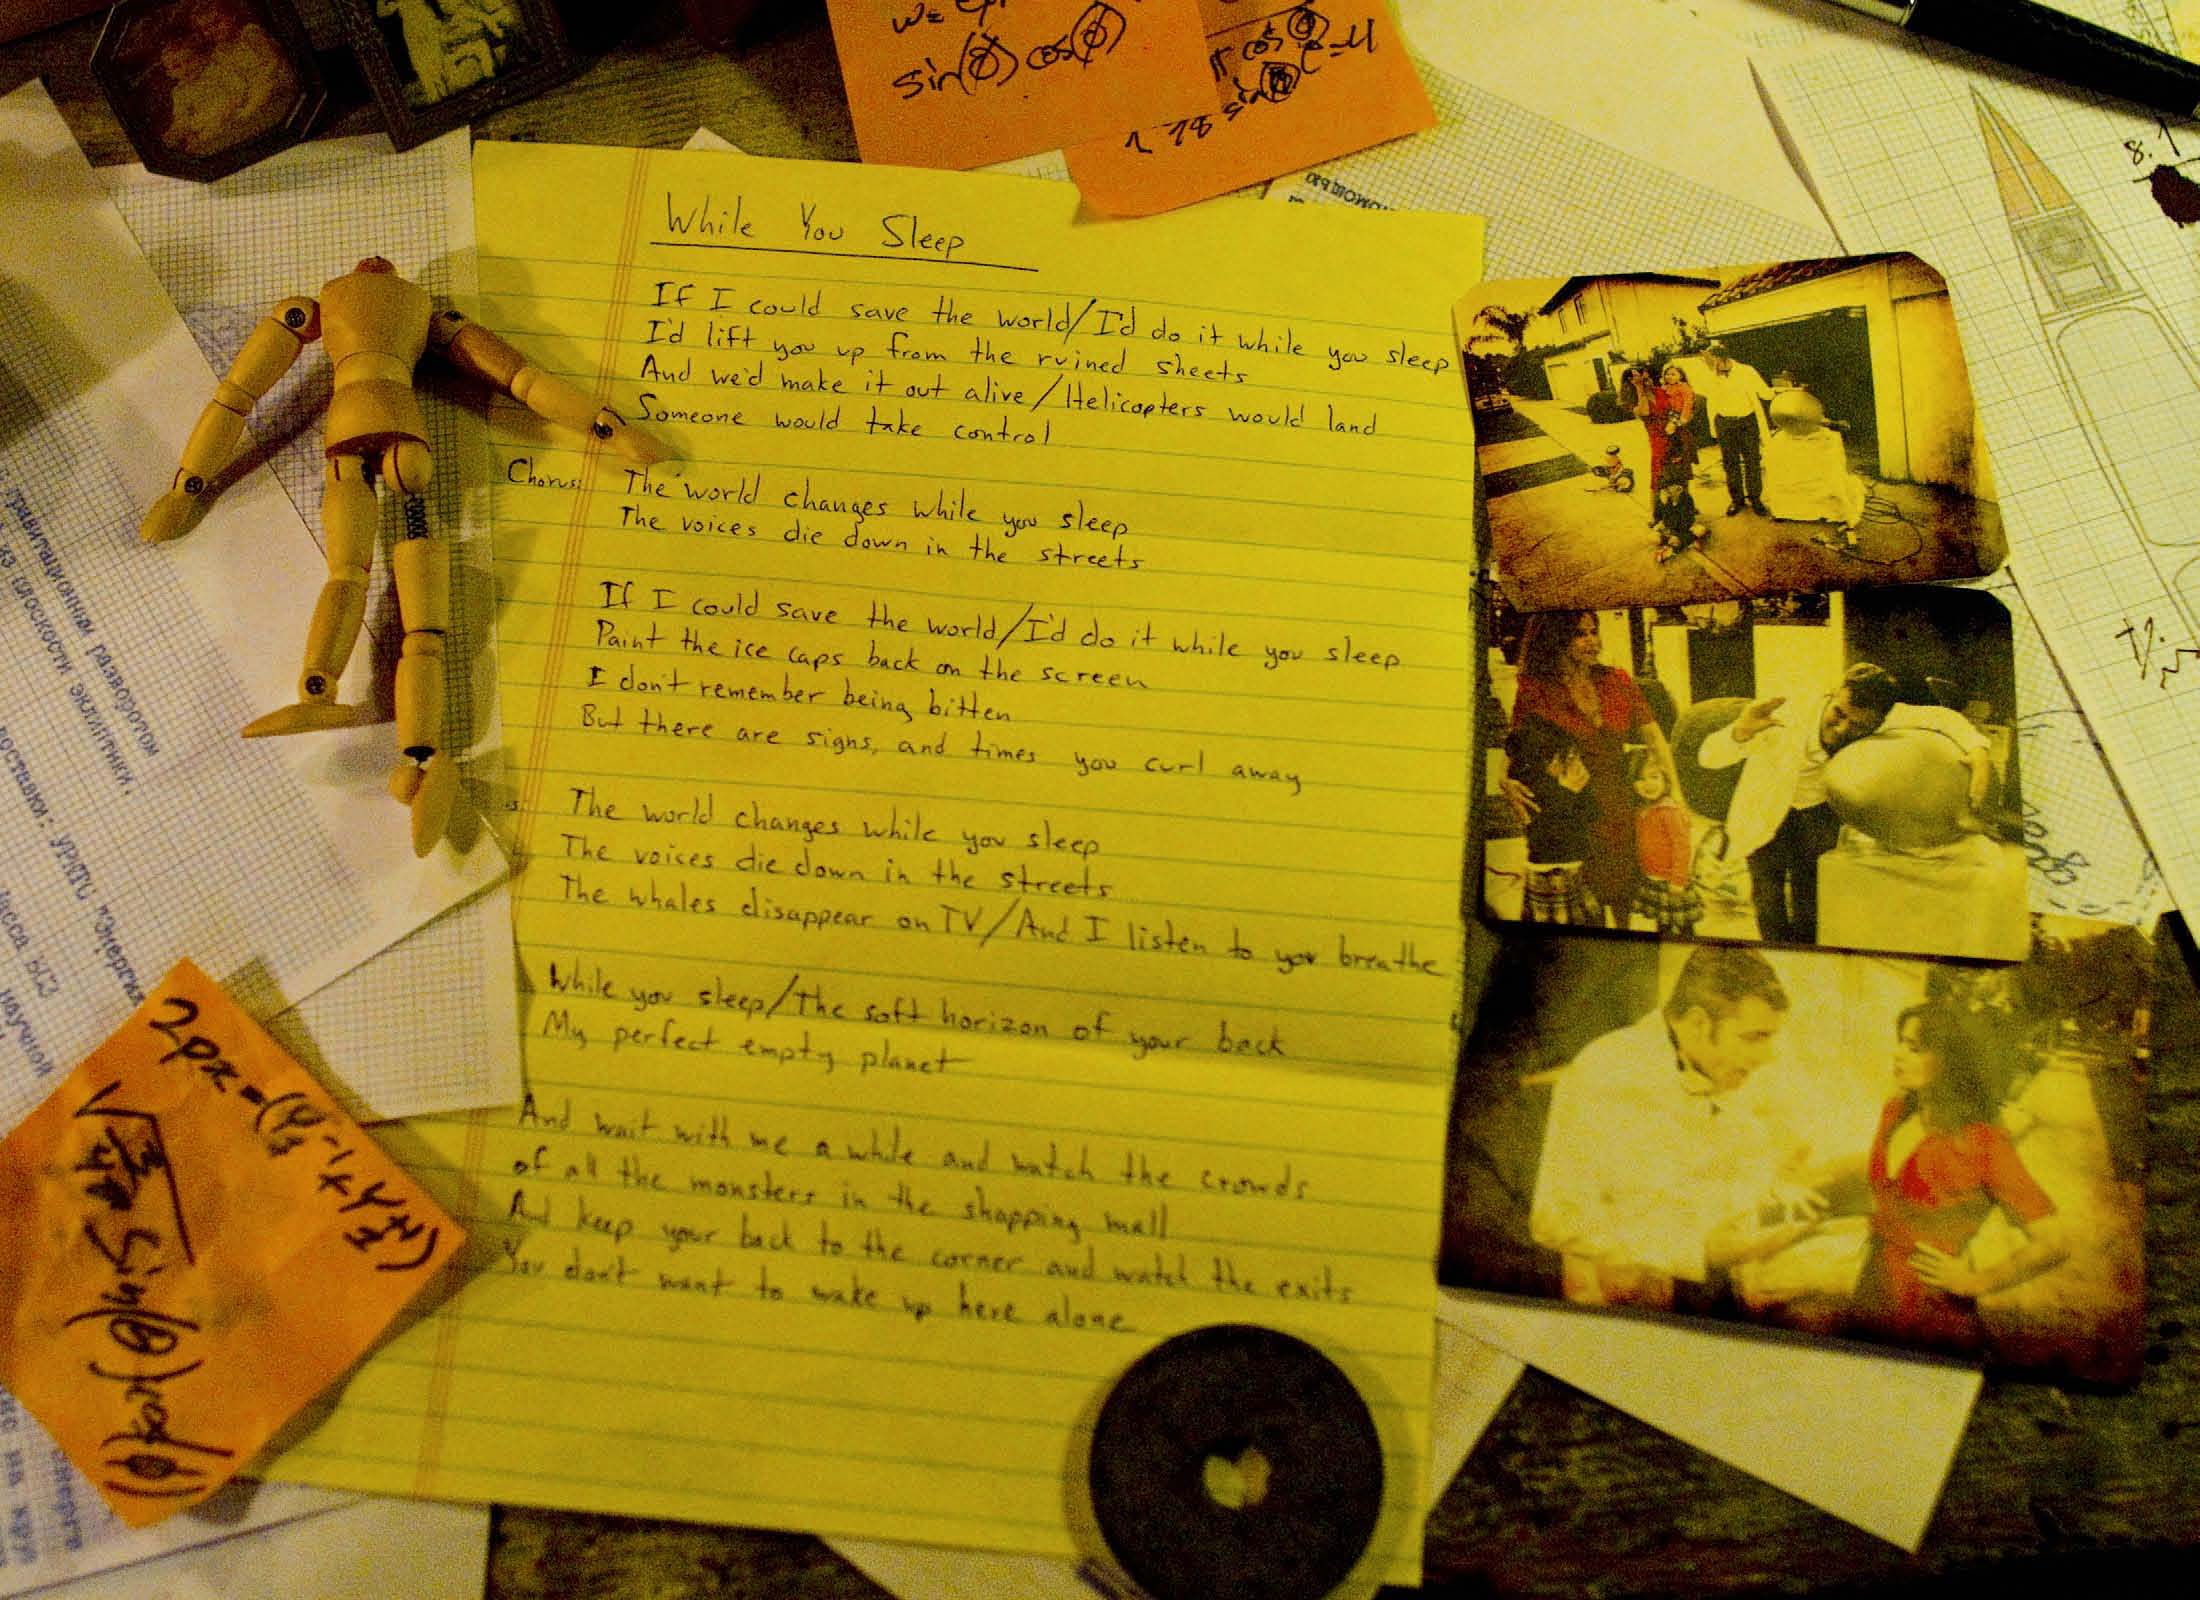 sin(φ) cos(φ)
While You Sleep
If I could save the world/I'd do it while you sleep
I'd lift you up from the ruined sheets
And we'd make it out alive/Helicopters would land
Someone would take control
Chorus: The world changes while you sleep
The voices die down in the streets
If I could save the world/I'd do it while you sleep
Paint the ice caps back on the screen
I don't remember being bitten
But there are signs, and times you curl away
The world changes while you sleep
The voices die down in the streets
The whales disappear on TV/And I listen to you breathe
While you sleep/The soft horizon of your back
My perfect empty planet
And wait with me a while and watch the crowds
of all the monsters in the shopping mall
And keep your back to the corner and watch the exits
You don't want to wake up here alone
гравитационным разворотом
из плоскости эклиптики.
доставки: УРКТС "Энергия
научной
8.1